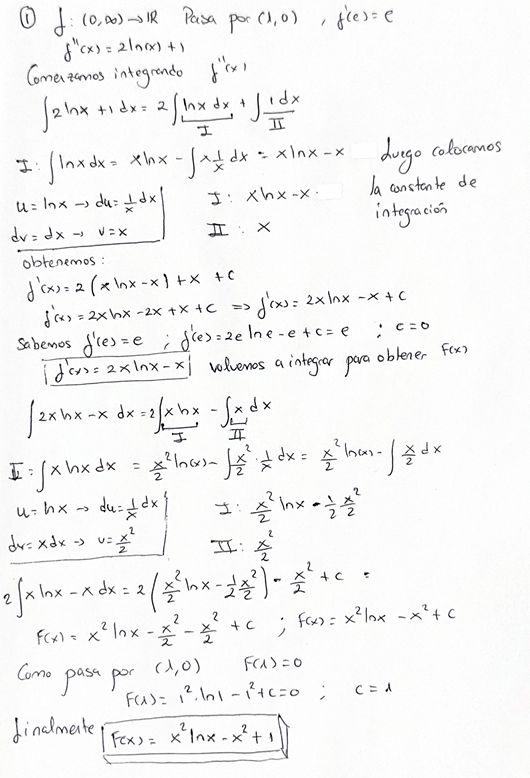 ① f: (0,∞) → IR Pasa por (1,0) , f'(e) = e
f''(x) = 2 ln(x) + 1
Comenzamos integrando f''(x)
∫ 2 ln x + 1 dx = 2 ∫ ln x dx + ∫ 1 dx
I II
I: ∫ ln x dx = x ln x - ∫ x 1/x dx = x ln x - x
Luego colocamos
la constante de
integración
u = ln x → du = 1/x dx
dv = dx → v = x
I: x ln x - x
II: x
obtenemos:
f'(x) = 2 (x ln x - x) + x + c
f'(x) = 2x ln x - 2x + x + c ⇒ f'(x) = 2x ln x - x + c
Sabemos f'(e) = e ; f'(e) = 2e ln e - e + c = e ; c = 0
f'(x) = 2x ln x - x volvemos a integrar para obtener F(x)
∫ 2x ln x - x dx = 2 ∫ x ln x - ∫ x dx
I II
I: ∫ x ln x dx = x²/2 ln(x) - ∫ x²/2 · 1/x dx = x²/2 ln(x) - ∫ x/2 dx
u = ln x → du = 1/x dx
dv = x dx → v = x²/2
I: x²/2 ln x - 1/2 x²/2
II: x²/2
2 ∫ x ln x - x dx = 2 (x²/2 ln x - 1/2 x²/2) - x²/2 + c =
F(x) = x² ln x - x²/2 - x²/2 + c ; F(x) = x² ln x - x² + c
Como pasa por (1,0) F(1) = 0
F(1) = 1² · ln 1 - 1² + c = 0 ; c = 1
finalmente F(x) = x² ln x - x² + 1